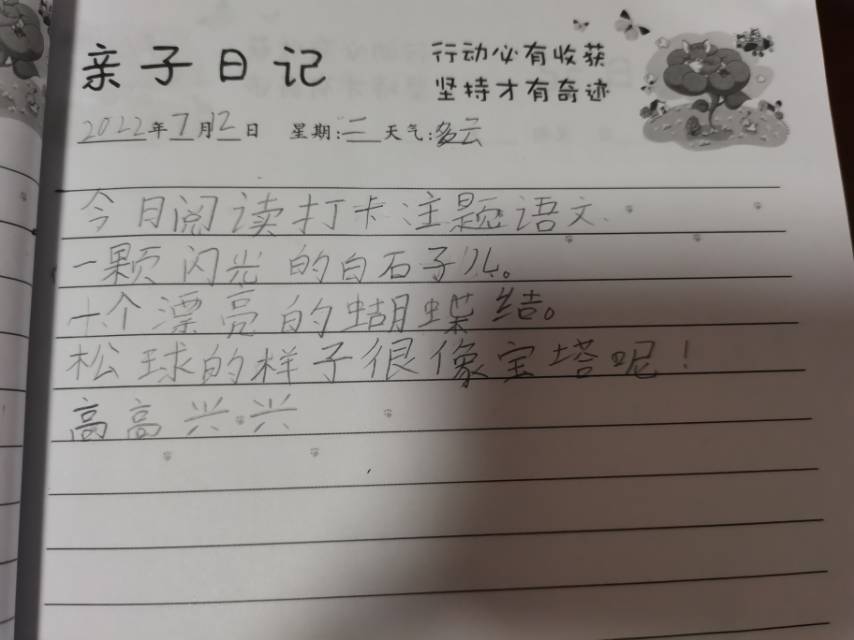 亲子日记
行动必有收获
坚持才有奇迹
2022年7月2日 星期:三 天气:多云
今日阅读打卡主题语文.
一颗闪光的白石子儿。
十个漂亮的蝴蝶结。
松球的样子很像宝塔呢!
高高兴兴